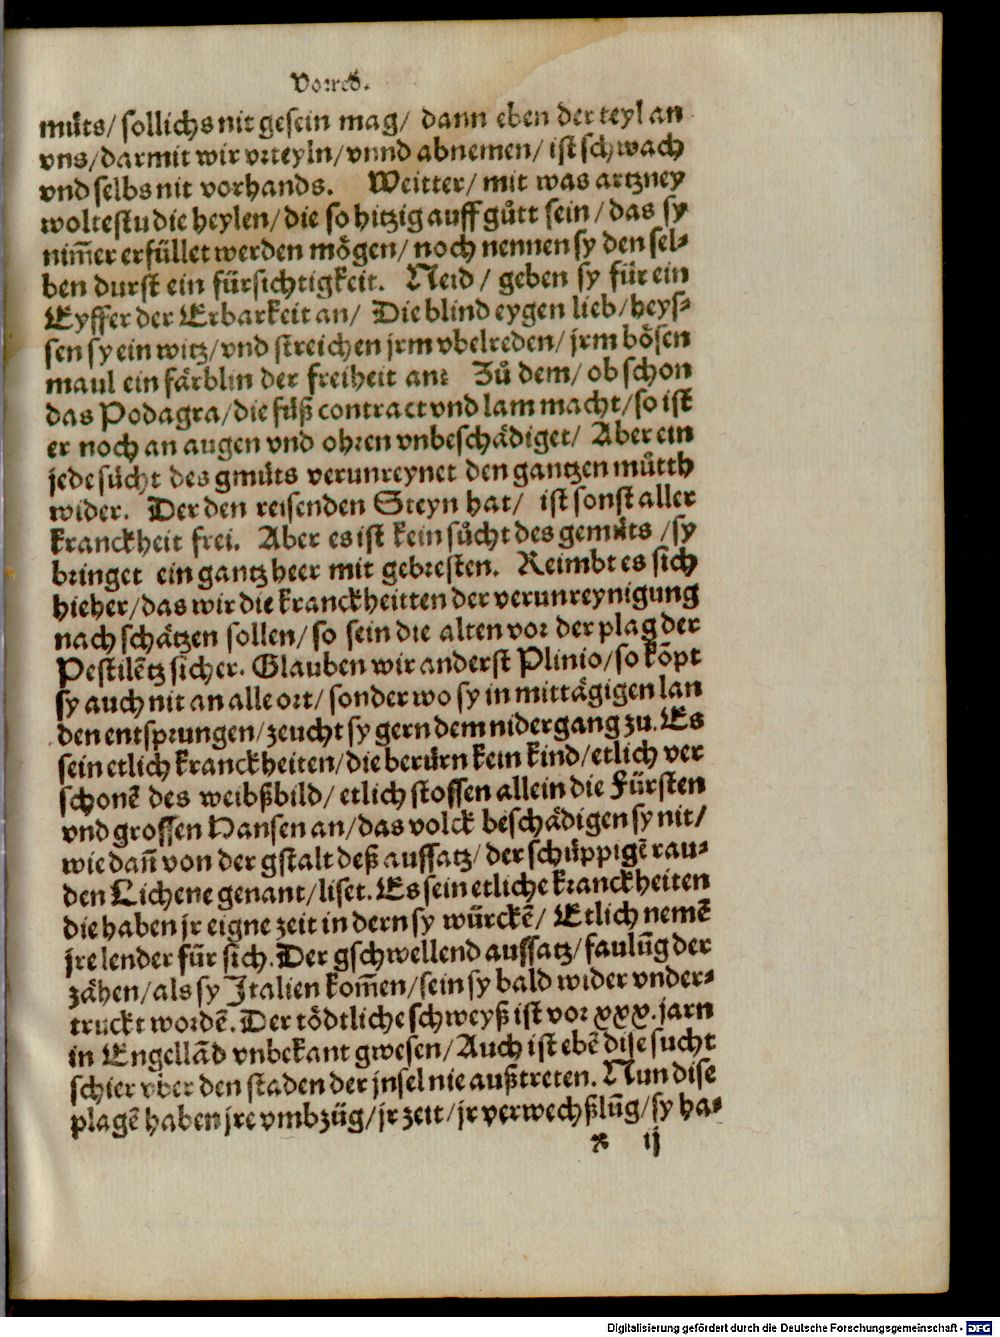 Vorred.
muͤts/ sollichs nit gesein mag/ dann eben der teyl an
vns/ darmit wir vrteyln/ vnnd abnemen/ ist schwach
vnd selbs nit vorhands. Weitter/ mit was artzney
woltestu die heylen/ die so hitzig auff guͦtt sein/ das sy
nim̃er erfüllet werden moͤgen/ noch nennen sy den sel⸗
ben durst ein fürsichtigkeit. Neid/ geben sy für ein
Eyffer der Erbarkeit an/ Die blind eygen lieb/ heys⸗
sen sy ein witz/ vnd streichen jrm vbelreden/ jrm boͤsen
maul ein faͤrblin der freiheit an: Zuͦ dem/ ob schon
das Podagra/ die fuͤß contract vnd lam macht/ so ist
er noch an augen vnd ohren vnbeschaͤdiget/ Aber ein
jede suͤcht des gmuͤts verunreynet den gantzen muͦtth
wider. Der den reisenden Steyn hat/ ist sonst aller
kranckheit frei. Aber es ist kein suͤcht des gemuͤts/ sy
bringet ein gantz heer mit gebresten. Reimbt es sich
hieher/ das wir die kranckheitten der verunreynigung
nach schaͤtzen sollen/ so sein die alten vor der plag der
Pestilẽtz sicher. Glauben wir anderst Plinio/ so kõpt
sy auch nit an alle ort/ sonder wo sy in mittaͤgigen lan
den entsprungen/ zeucht sy gern dem nidergang zu. Es
sein etlich kranckheiten/ die beruͤrn kein kind/ etlich ver
schonẽ des weibßbild/ etlich stossen allein die Fürsten
vnd grossen Hansen an/ das volck beschaͤdigen sy nit/
wie dañ von der gstalt deß aussatz/ der schüppigẽ rau⸗
den Lichene genant/ liset. Es sein etliche kranckheiten
die haben jr eigne zeit in dern sy würckẽ/ Etlich nemẽ
jre lender für sich. Der gschwellend aussatz/ faulũg der
zaͤhen/ als sy Italien kom̃en/ sein sy bald wider vnder⸗
truckt wordẽ. Der toͤdtliche schweyß ist vor xxx. jarn
in Engellãd vnbekant gwesen/ Auch ist ebẽ dise sucht
schier vber den staden der jnsel nie außtreten. Nun dise
plagẽ haben jre vmbzüg/ jr zeit/ jr verwechßlũg/ sy ha⸗
x ij
Digitalisierung gefördert durch die Deutsche Forschungsgemeinschaft - DFG